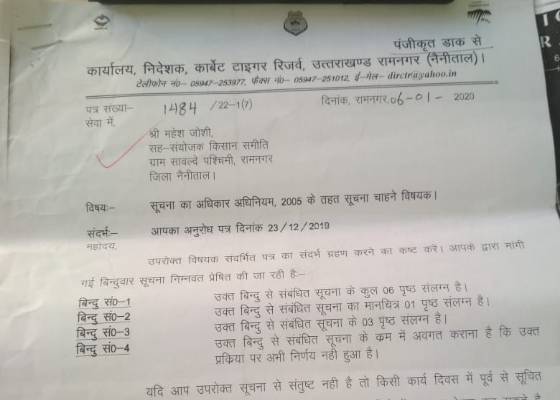 पंजीकृत डाक से
कार्यालय, निदेशक, कार्बेट टाइगर रिजर्व, उत्तराखण्ड रामनगर (नैनीताल)।
टेलीफोन नं0– 05947-253977, फैक्स नं0– 05947-251012, ई–मेल– dirctr@yahoo.in
पत्र संख्या– 1484 /22-1(7) दिनांक, रामनगर, 06-01- 2020
सेवा में,
श्री महेश जोशी,
सह–संयोजक किसान समीति
ग्राम सावल्दे पश्चिमी, रामनगर
जिला नैनीताल।
विषयः– सूचना का अधिकार अधिनियम, 2005 के तहत सूचना चाहने विषयक।
संदर्भः– आपका अनुरोध पत्र दिनांक 23/12/2019
महोदय,
उपरोक्त विषयक संदर्भित पत्र का संदर्भ ग्रहण करने का कष्ट करें। आपके द्वारा मांगी
गई बिन्दुवार सूचना निम्नवत प्रेषित की जा रही है:–
बिन्दु सं0–1 उक्त बिन्दु से संबंधित सूचना के कुल 06 पृष्ठ संलग्न है।
बिन्दु सं0–2 उक्त बिन्दु से संबंधित सूचना का मानचित्र 01 पृष्ठ संलग्न है।
बिन्दु सं0–3 उक्त बिन्दु से संबंधित सूचना के 03 पृष्ठ संलग्न है।
बिन्दु सं0–4 उक्त बिन्दु से संबंधित सूचना के क्रम में अवगत कराना है कि उक्त
प्रकिया पर अभी निर्णय नही हुआ है।
यदि आप उपरोक्त सूचना से संतुष्ट नही है तो किसी कार्य दिवस में पूर्व से सूचित